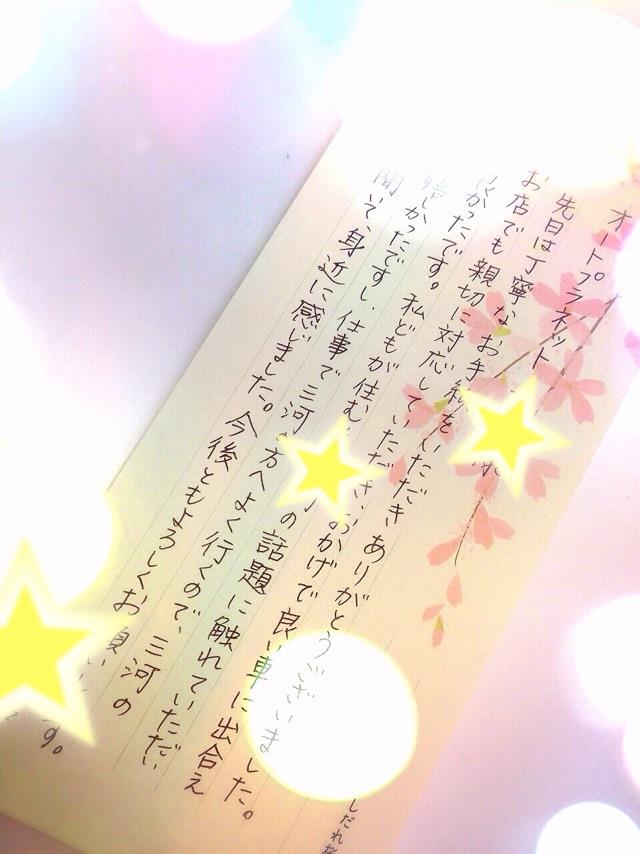 オートプラネット
先日は丁寧なお手紙をいただき ありがとうございました。
お店でも親切に対応していただき、おかげで良い車に出合え
よかったです。私どもが住む の話題に触れていただい
嬉しかったですし、仕事で三河の方へよく行くので、三河の
聞いて、身近に感じました。今後ともよろしくお願い
す。
しだれ桜